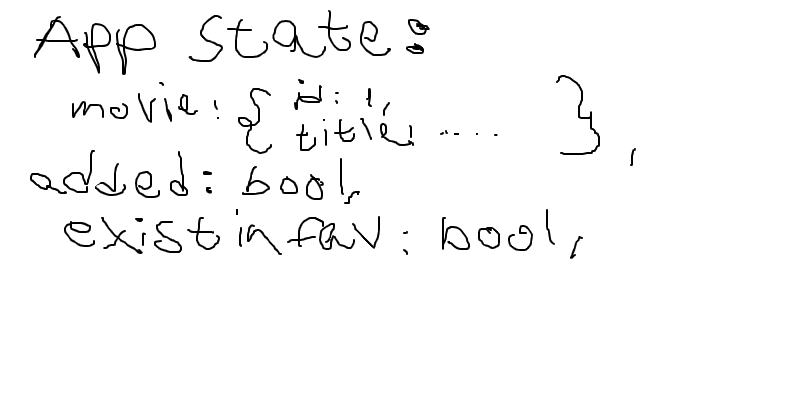 App state:
movie: { id: 1,
title: ..... },
added: bool,
existinfav: bool,